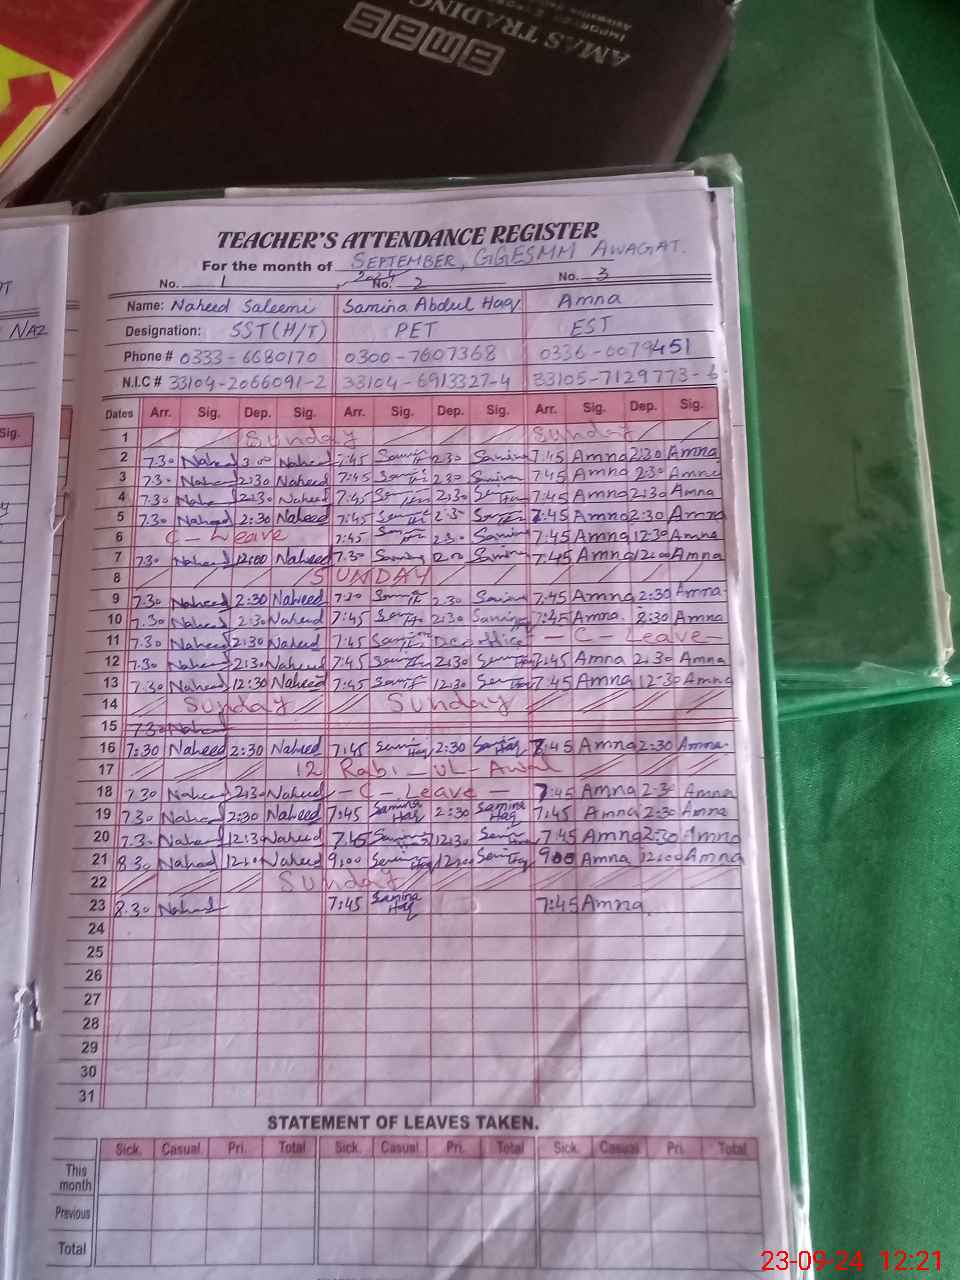 AMAS TRADING
TEACHER'S ATTENDANCE REGISTER
For the month of SEPTEMBER, GGESMM AWAGAT.
2024
No. 1 No. 2 No. 3
Name: Naheed Saleemi Samina Abdul Haq Amna
Designation: SST(H/T) PET EST
Phone # 0333-6680170 0300-7607368 0336-6079451
N.I.C # 33104-2066091-2 33104-6913327-4 33105-7129773-6
Dates Arr. Sig. Dep. Sig. Arr. Sig. Dep. Sig. Arr. Sig. Dep. Sig.
1 Sunday Sunday
2 7.30 Naheed 3:00 Naheed 7:45 2:30 Samina 7:45 Amna 2:30 Amna
3 7.30 Naheed 2:30 Naheed 7:45 2:30 Samina 7:45 Amna 2:30 Amna
4 7.30 Naheed 2:30 Naheed 7:45 2:30 7:45 Amna 2:30 Amna
5 7.30 Naheed 2:30 Naheed 7:45 2:30 7:45 Amna 2:30 Amna
6 C - Leave 7:45 2:30 Samina 7:45 Amna 12:30 Amna
7 7.30 Naheed 12:00 Naheed 7:30 Samina 12:00 Samina 7:45 Amna 12:00 Amna
8 SUNDAY
9 7.30 Naheed 2:30 Naheed 7:30 2:30 Samina 7:45 Amna 2:30 Amna
10 7.30 Naheed 2:30 Naheed 7:45 2:30 Samina 7:45 Amna 2:30 Amna
11 7.30 Naheed 2:30 Naheed 7:45 office - C - Leave -
12 7.30 Naheed 2:30 Naheed 7:45 2:30 7:45 Amna 2:30 Amna
13 7.30 Naheed 12:30 Naheed 7:45 12:30 7:45 Amna 12:30 Amna
14 Sunday Sunday
15 7.30 Naheed
16 7:30 Naheed 2:30 Naheed 7:45 Samina Haq 2:30 Samina Haq 7:45 Amna 2:30 Amna
17 12 Rabi - ul - Awal
18 7.30 Naheed 2:30 Naheed - C - Leave - 7:45 Amna 2:30 Amna
19 7.30 Naheed 2:30 Naheed 7:45 Samina Haq 2:30 Samina Haq 7:45 Amna 2:30 Amna
20 7.30 Naheed 12:30 Naheed 7:45 Samina 12:30 Samina 7:45 Amna 2:30 Amna
21 8.30 Naheed 12:00 Naheed 9:00 Samina Haq 12:00 Samina Haq 900 Amna 12:00 Amna
22 Sunday
23 8.30 Naheed 7:45 Samina Haq 7:45 Amna
24
25
26
27
28
29
30
31
STATEMENT OF LEAVES TAKEN.
Sick. Casual Pri. Total Sick. Casual Pri. Total Sick. Casual Pri. Total
This month
Previous
Total
NAZ
Sig.
23-09-24 12:21